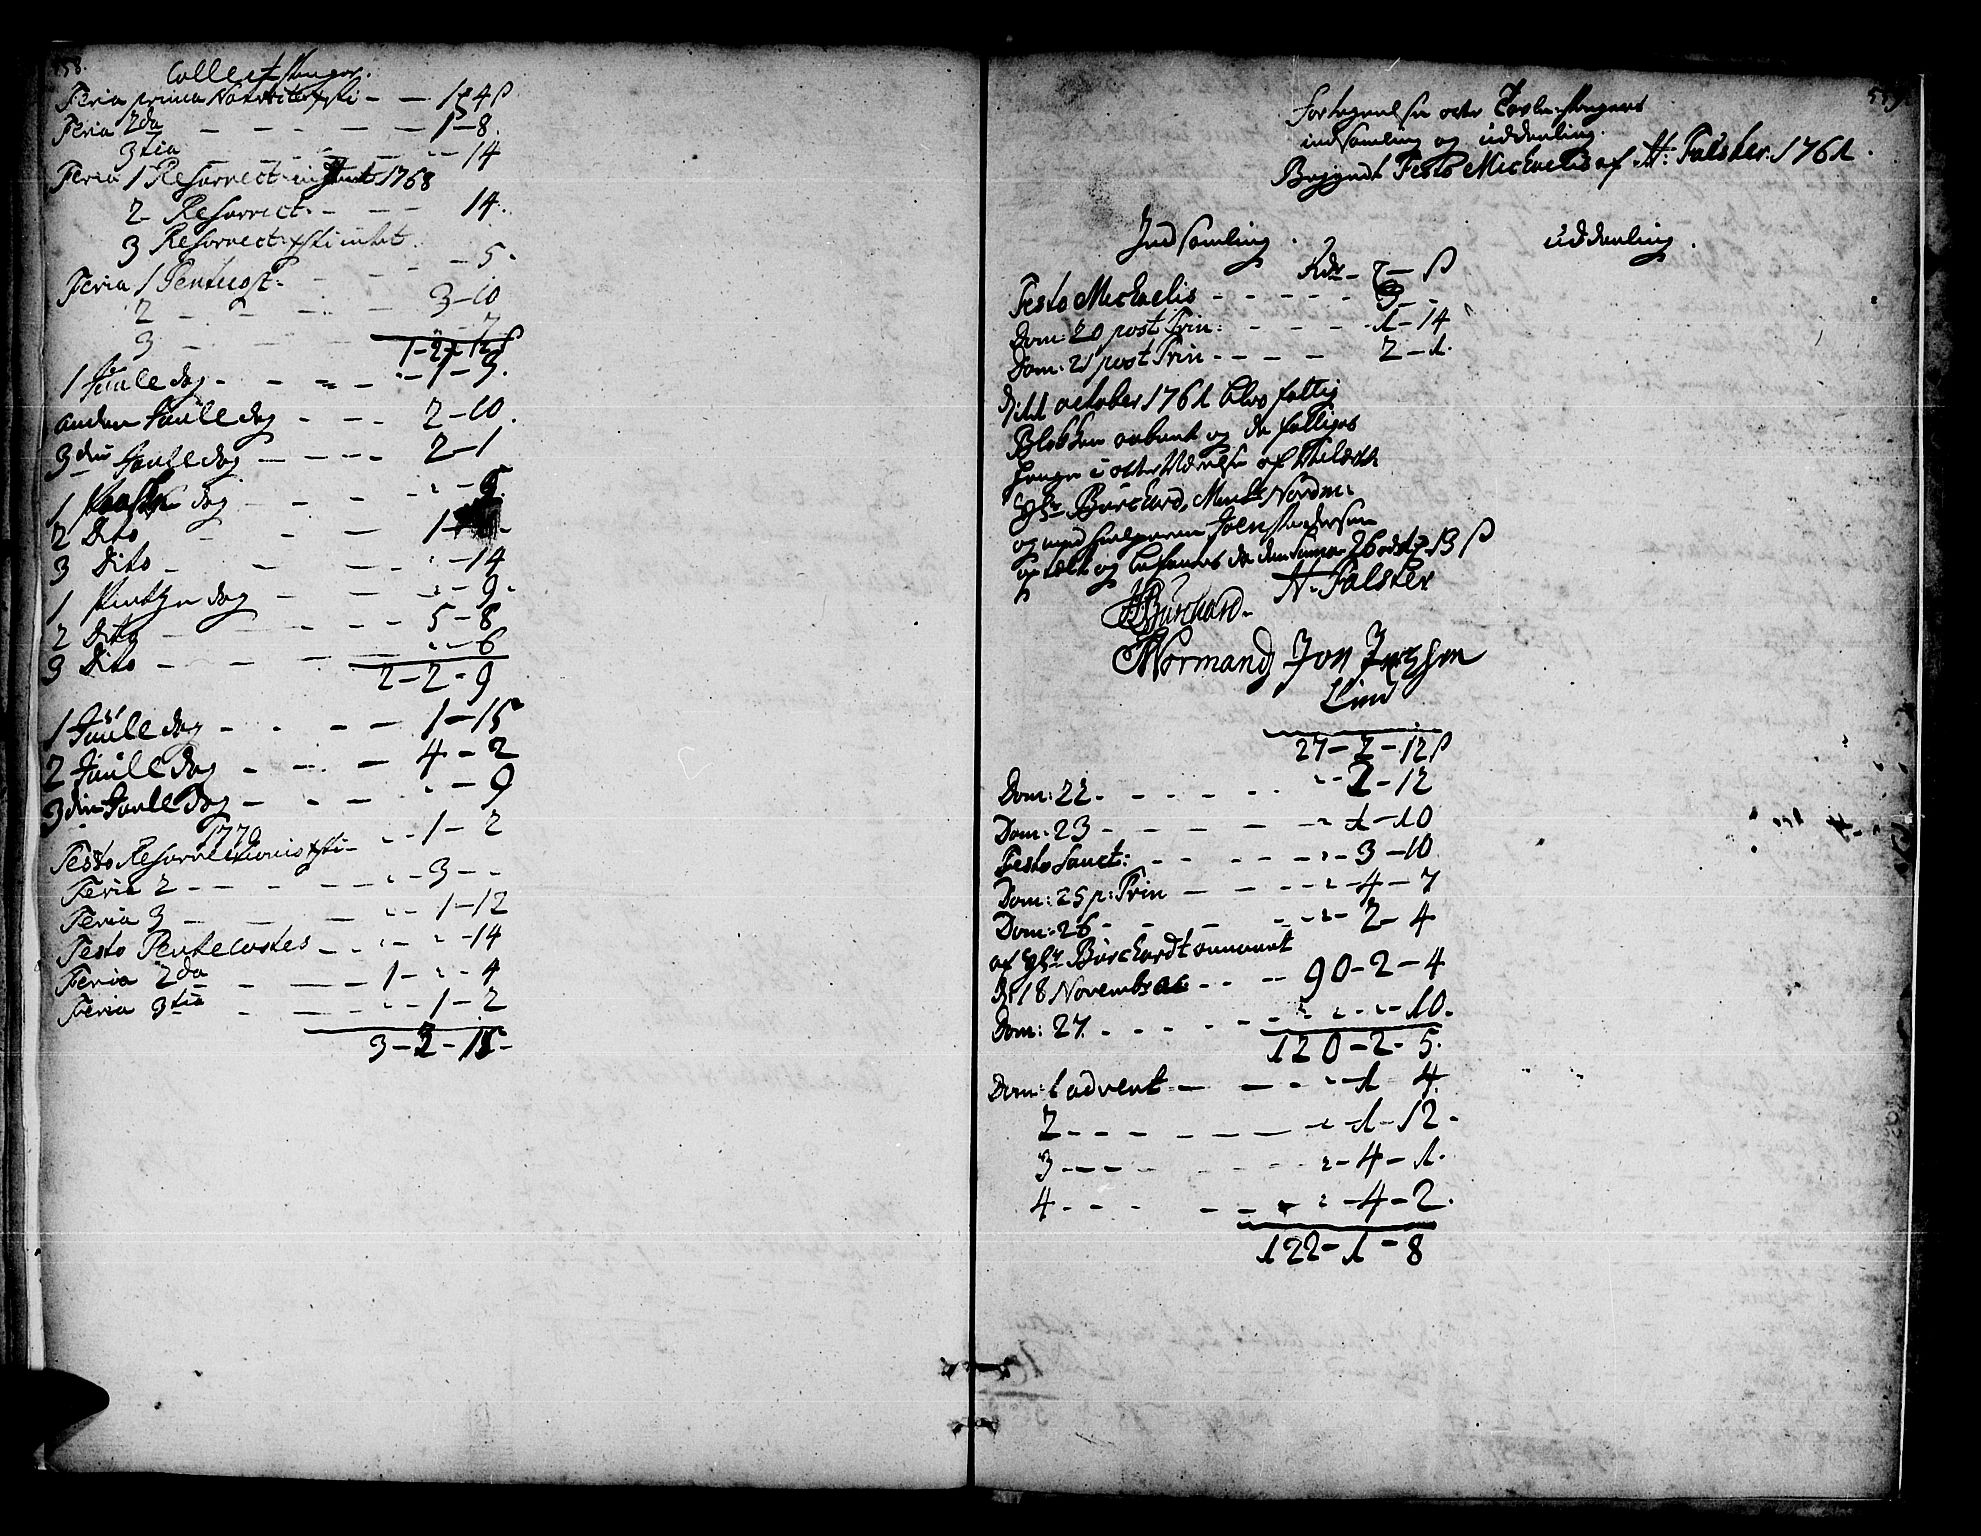 558.
Collect penger.
Feria prima Nativitat: Xsti - - 1 - 4 ß
Feria 2da - - - - - 1 - 8.
3tia - - - - 14
Feria 1 Resurrect: 1768
2 - Resurrect: - - - 14.
3 Resurrect: Xsti intet.
Feria 1 Pentecost - - - - 5.
2 - - - - 3 - 10
3 - - - 7
1 - 2 - 12 ß
1 Juule dag - - - - 1 - 3.
anden Juule dag - - - 2 - 10.
3die Juule dag - - - - 2 - 1
1 Paaske dag - - -
2 Dito - - - 1 -
3 Dito - - - 14
1 Pintze dag - - - 9.
2 Dito - - - - 5 - 8
3 Dito - - - - 6
2 - 2 - 9
1 Juule dag - - - - 1 - 15
2 Juule dag - - - 4 - 2
3die Juule dag - - - - 9
1770
Festo Resurrectionis Xsti - - - 1 - 2
Feria 2 - - - - - 3 - -
Feria 3 - - - - - 1 - 12
Festo Pentecostes - - - - 14
Feria 2da - - - 1 - - 4
Feria 3tia - - - - 1 - 2
3 - 2 - 15 -
559.
Fortegnelse over Tavle-Pengers
indsamling og uddeeling.
Begyndt Festo Michaelis af H: Falster. 1761.
Indsamling. uddeeling.
Rdr - - ß
Festo Michaelis - - - - - 3 - -
Dom: 20 post Trin: - - - - 1 - 14
Dom: 21 post Trin - - - - 2 - 1.
d: 11 october 1761 blev fattig
Blokken aabnet og de fattiges
penge i overværelse af
Hr Burchard, Nordm:
og
optælt og 26 13 ß
H. Falster
HBurchard.
Normand Jon
Lind
27 - 2 - 12 ß
Dom: 22. - - - - - 2 - 12
Dom: 23 - - - - - 1 - 10
Festo Sanct: - - - - - 3 - 10
Dom: 25 p: Trin - - - - 4 - 7
Dom: 26 - - - - - 2 - 4
af Hr Burchardt annammet
d: 18 Novembr - - - 90 - 2 - 4
Dom: 27. - - - - - - - 10.
120 - 2 - 5.
Dom: 1 advent - - - - 1 - 4.
2 - - - - - - - 1 - 12.
3 - - - - - - 4 - 1.
4 - - - - - - 4 - 2.
122 - 1 - 8